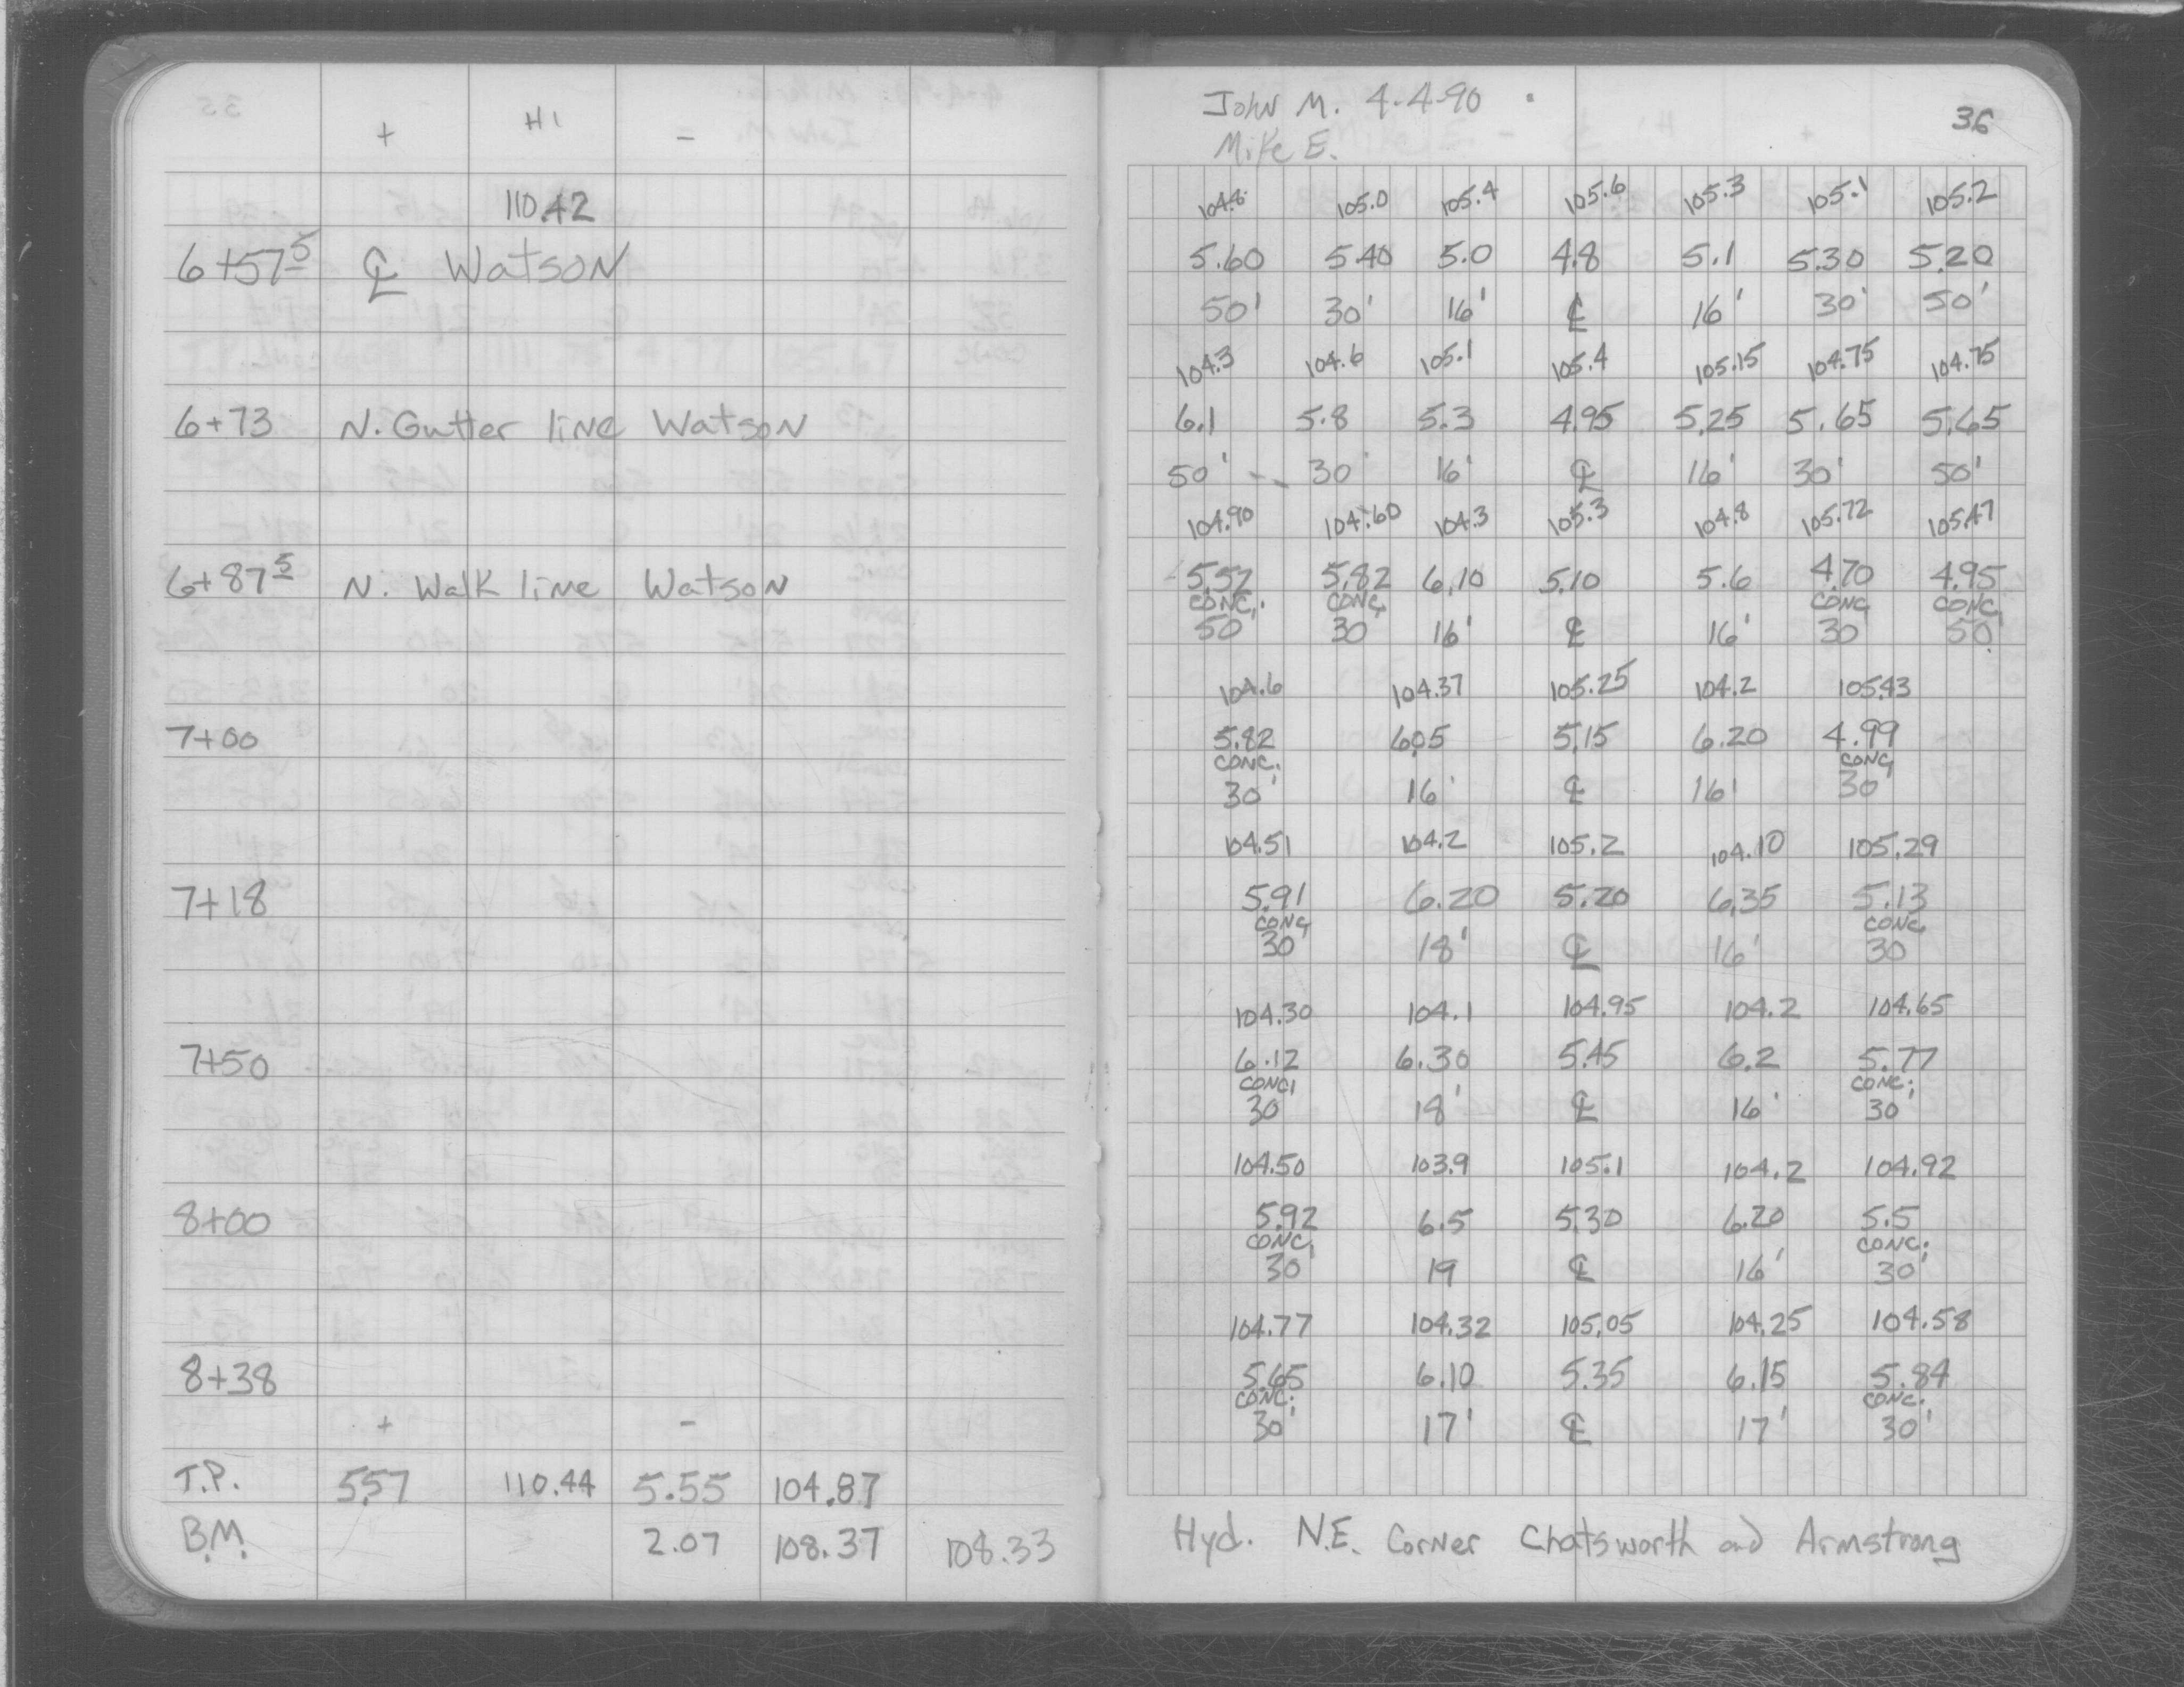 + HI -
110.42
6+57⁵ ℄ Watson
6+73 N. Gutter line Watson
6+87⁵ N. Walk line Watson
7+00
7+18
7+50
8+00
8+38
+ -
T.P. 5.57 110.44 5.55 104.87
B.M. 2.07 108.37 108.33
John M. 4-4-90
Mike E.
36
104.8 105.0 105.4 105.6 105.3 105.1 105.2
5.60 5.40 5.0 4.8 5.1 5.30 5.20
50' 30' 16' ℄ 16' 30' 50'
104.3 104.6 105.1 105.4 105.15 104.75 104.75
6.1 5.8 5.3 4.95 5.25 5.65 5.65
50' 30' 16' ℄ 16' 30' 50'
104.90 104.60 104.3 105.3 104.8 105.72 105.47
5.52 5.82 6.10 5.10 5.6 4.70 4.95
CONC. CONC. CONC. CONC.
50' 30' 16' ℄ 16' 30' 50'
104.6 104.37 105.25 104.2 105.43
5.82 6.05 5.15 6.20 4.99
CONC. CONC.
30' 16' ℄ 16' 30'
104.51 104.2 105.2 104.10 105.29
5.91 6.20 5.20 6.35 5.13
CONC. CONC.
30' 18' ℄ 16' 30
104.30 104.1 104.95 104.2 104.65
6.12 6.30 5.45 6.2 5.77
CONC. CONC.
30 18' ℄ 16' 30'
104.50 103.9 105.1 104.2 104.92
5.92 6.5 5.30 6.20 5.5
CONC. CONC.
30' 19 ℄ 16' 30'
104.77 104.32 105.05 104.25 104.58
5.65 6.10 5.35 6.15 5.84
CONC. CONC.
30' 17' ℄ 17' 30'
Hyd. N.E. Corner Chatsworth and Armstrong